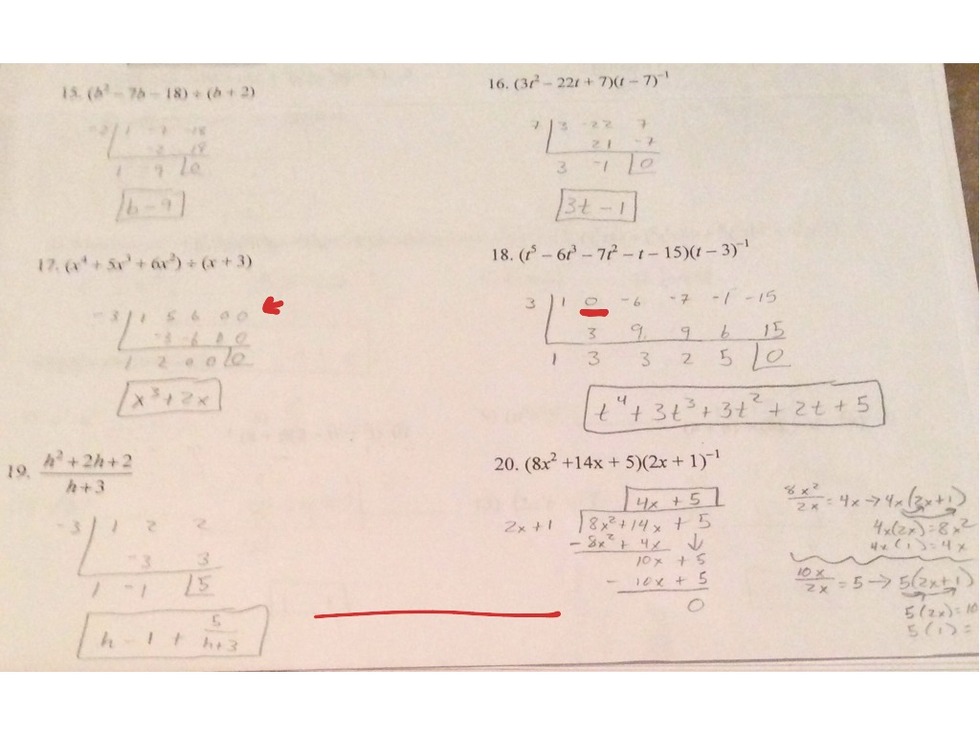 15. (b² – 7b – 18) ÷ (b + 2)
-2 1 -7 -18
-2 18
1 -9 0
b - 9
16. (3t² – 22t + 7)(t – 7)⁻¹
7 3 -22 7
21 -7
3 -1 0
3t - 1
17. (x⁴ + 5x³ + 6x²) ÷ (x + 3)
-3 1 5 6 0 0
-3 -6 0 0
1 2 0 0 0
x³ + 2x
18. (t⁵ – 6t³ – 7t² – t – 15)(t – 3)⁻¹
3 1 0 -6 -7 -1 -15
3 9 9 6 15
1 3 3 2 5 0
t⁴ + 3t³ + 3t² + 2t + 5
19. h² + 2h + 2
h + 3
-3 1 2 2
-3 3
1 -1 5
h - 1 + 5
h+3
20. (8x² +14x + 5)(2x + 1)⁻¹
4x + 5
2x+1 8x²+14x + 5
- 8x² + 4x ↓
10x + 5
- 10x + 5
0
8x²
2x = 4x → 4x(2x+1)
4x(2x)=8x²
4x(1)=4x
10x
2x = 5 → 5(2x+1)
5(2x)=10
5(1)=